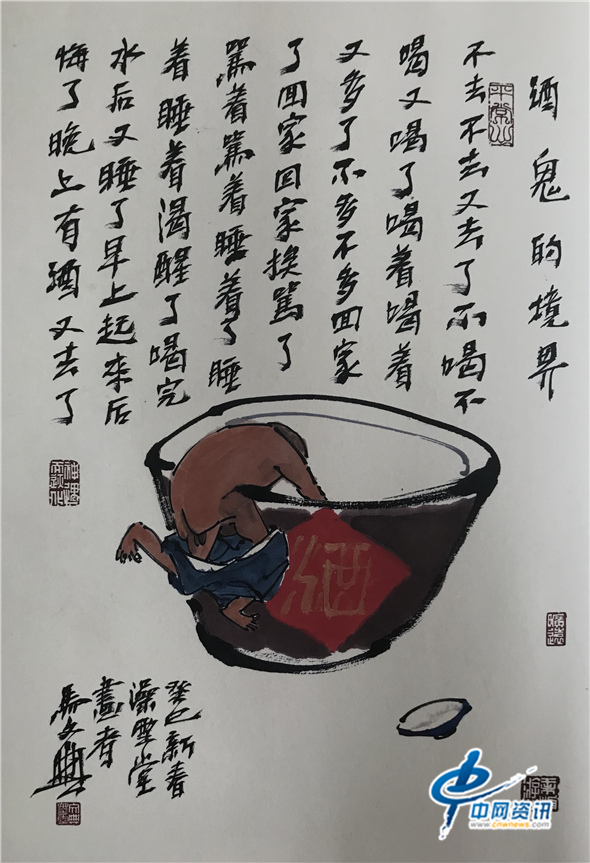 酒鬼的境界
不去不去又去了不喝不
喝又喝了喝着喝着
又多了不多不多回家
了回家回家挨罵了
罵着罵着睡着了睡
着睡着渴醒了喝完
水后又睡了早上起来后
悔了晚上有酒又去了
平常心
酒
癸巳新春
澡雪堂
畫者
中网资讯
www.cnwnews.com